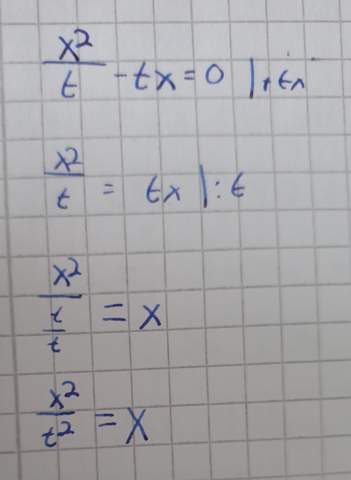 x²/t - tx = 0 | + tx
x²/t = tx | : t
x²/t/t = x
x²/t² = x